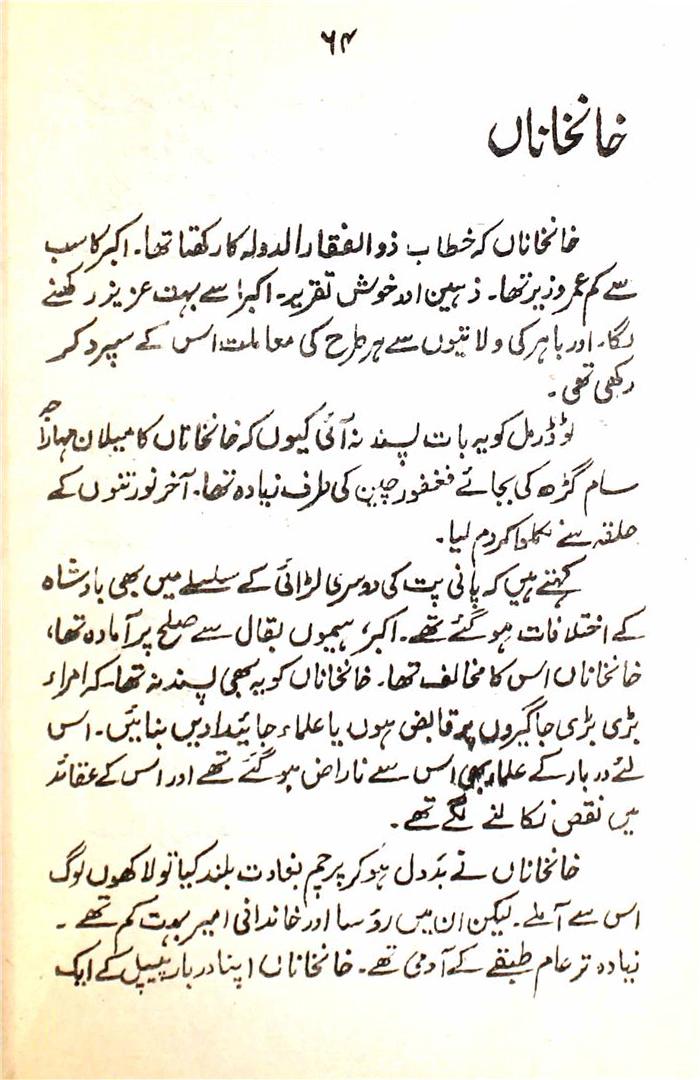 ۶۴
خانخاناں
خانخاناں کہ خطاب ذوالفقار الدولہ کا رکھتا تھا۔ اکبر کا سب
سے کم عمر وزیر تھا۔ ذہین اور خوش تقریر۔ اکبر اسے بہت عزیز رکھنے
لگا۔ اور باہر کی ولائتیوں سے ہر طرح کی معاملت اس کے سپرد کر
رکھی تھی۔
ٹوڈرمل کو یہ بات پسند نہ آئی کیوں کہ خانخاناں کا میلان مہاراجہ
سام گڑھ کی بجائے فغفور چین کی طرف زیادہ تھا۔ آخر نورتنوں کے
حلقہ سے نکلوا کر دم لیا۔
کہتے ہیں کہ پانی پت کی دوسری لڑائی کے سلسلے میں بھی بادشاہ
کے اختلافات ہو گئے تھے۔ اکبر، ہیموں بقال سے صلح پر آمادہ تھا،
خانخاناں اس کا مخالف تھا۔ خانخاناں کو یہ بھی پسند نہ تھا۔ کہ امراء
بڑی بڑی جاگیروں پر قابض ہوں یا علماء جائیدادیں بنائیں۔ اس
لئے دربار کے علماء بھی اس سے ناراض ہو گئے تھے اور اس کے عقائد
میں نقص نکالنے لگے تھے۔
خانخاناں نے بددل ہو کر پرچم بغاوت بلند کیا تو لاکھوں لوگ
اس سے آملے۔ لیکن ان میں رؤسا اور خاندانی امیر بہت کم تھے۔
زیادہ تر عام طبقے کے آدمی تھے۔ خانخاناں اپنا دربار پیپل کے ایک